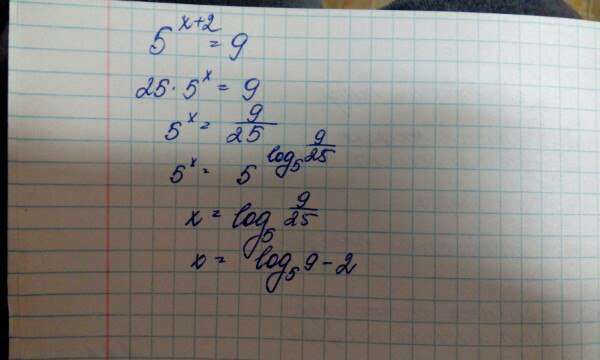 5^{x+2} = 9
25 · 5^x = 9
5^x = \frac{9}{25}
5^x = 5^{log_5 \frac{9}{25}}
x = log_5 \frac{9}{25}
x = log_5 9 - 2